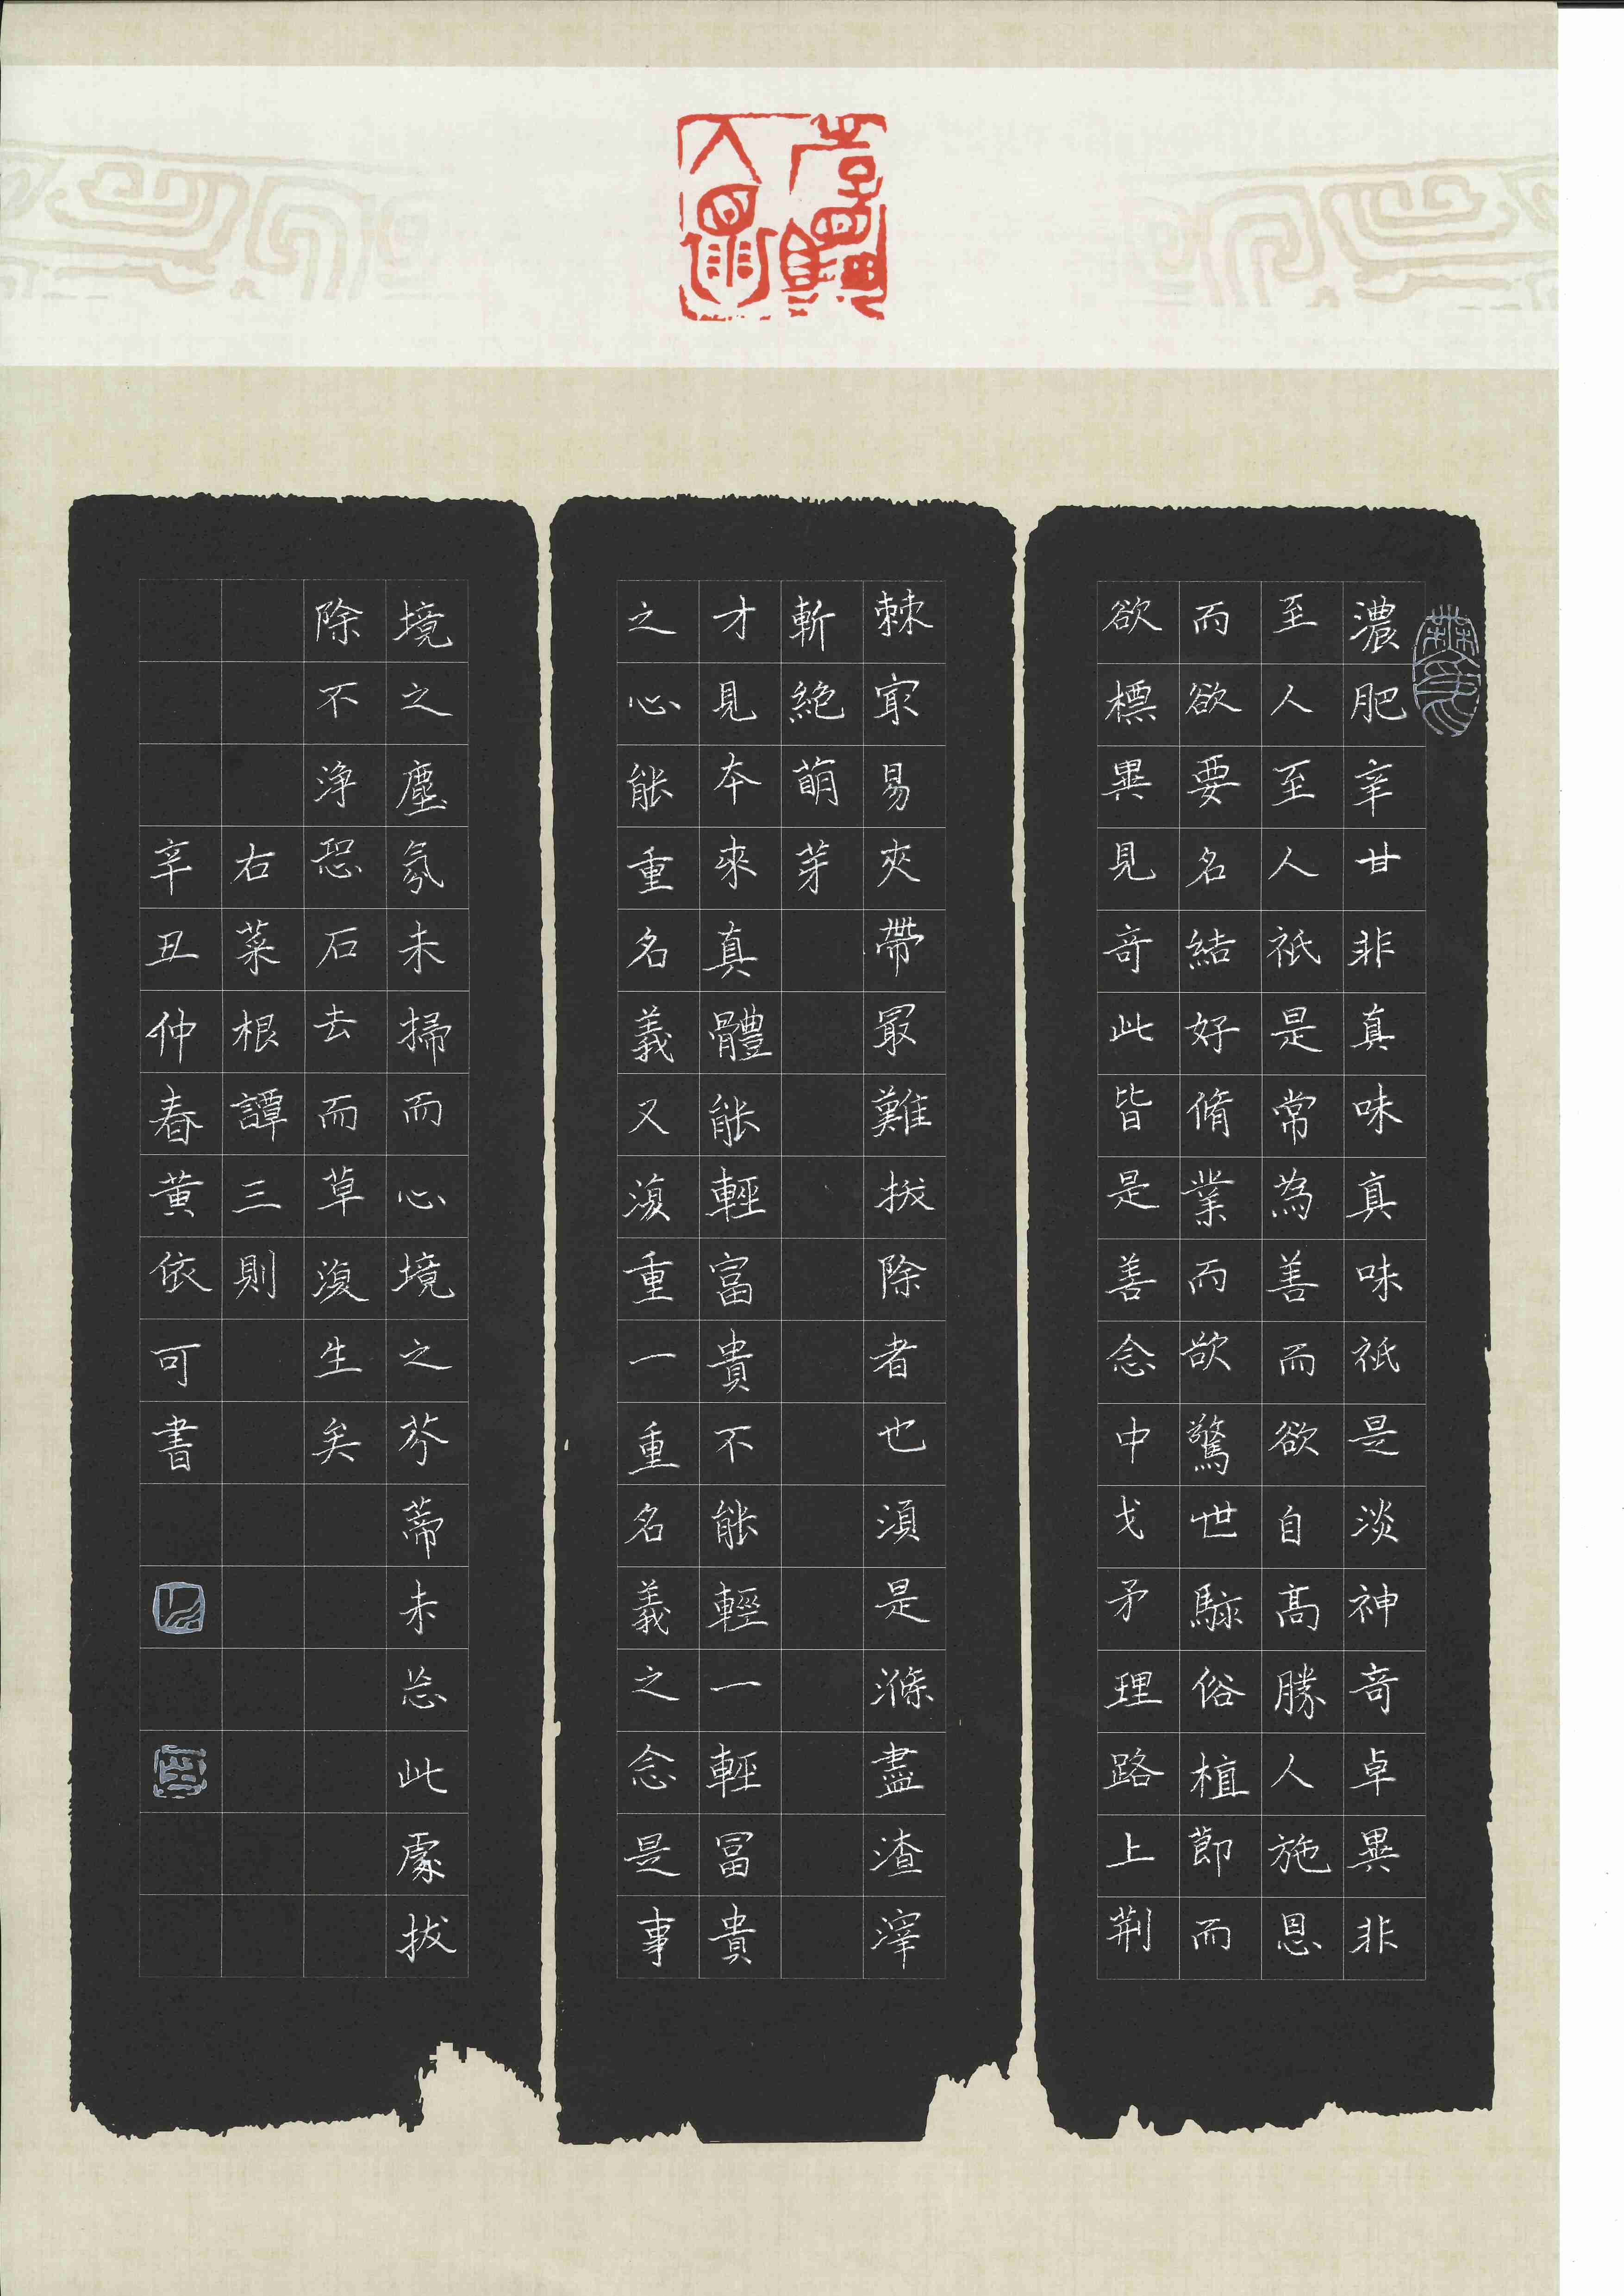 濃肥辛甘非真味真味祇是淡神奇卓異非
至人至人祇是常為善而欲自高勝人施恩
而欲要名結好脩業而欲驚世駭俗植節而
欲標異見奇此皆是善念中戈矛理路上荆
棘冣易夾帶冣難拔除者也須是滌盡渣滓
斬絶萌芽
才見本來真體能輕富貴不能輕一輕冨貴
之心能重名義又復重一重名義之念是事
境之塵氛未掃而心境之芥蒂未忘此處拔
除不浄恐石去而草復生矣
右菜根譚三則
辛丑仲春黄依可書